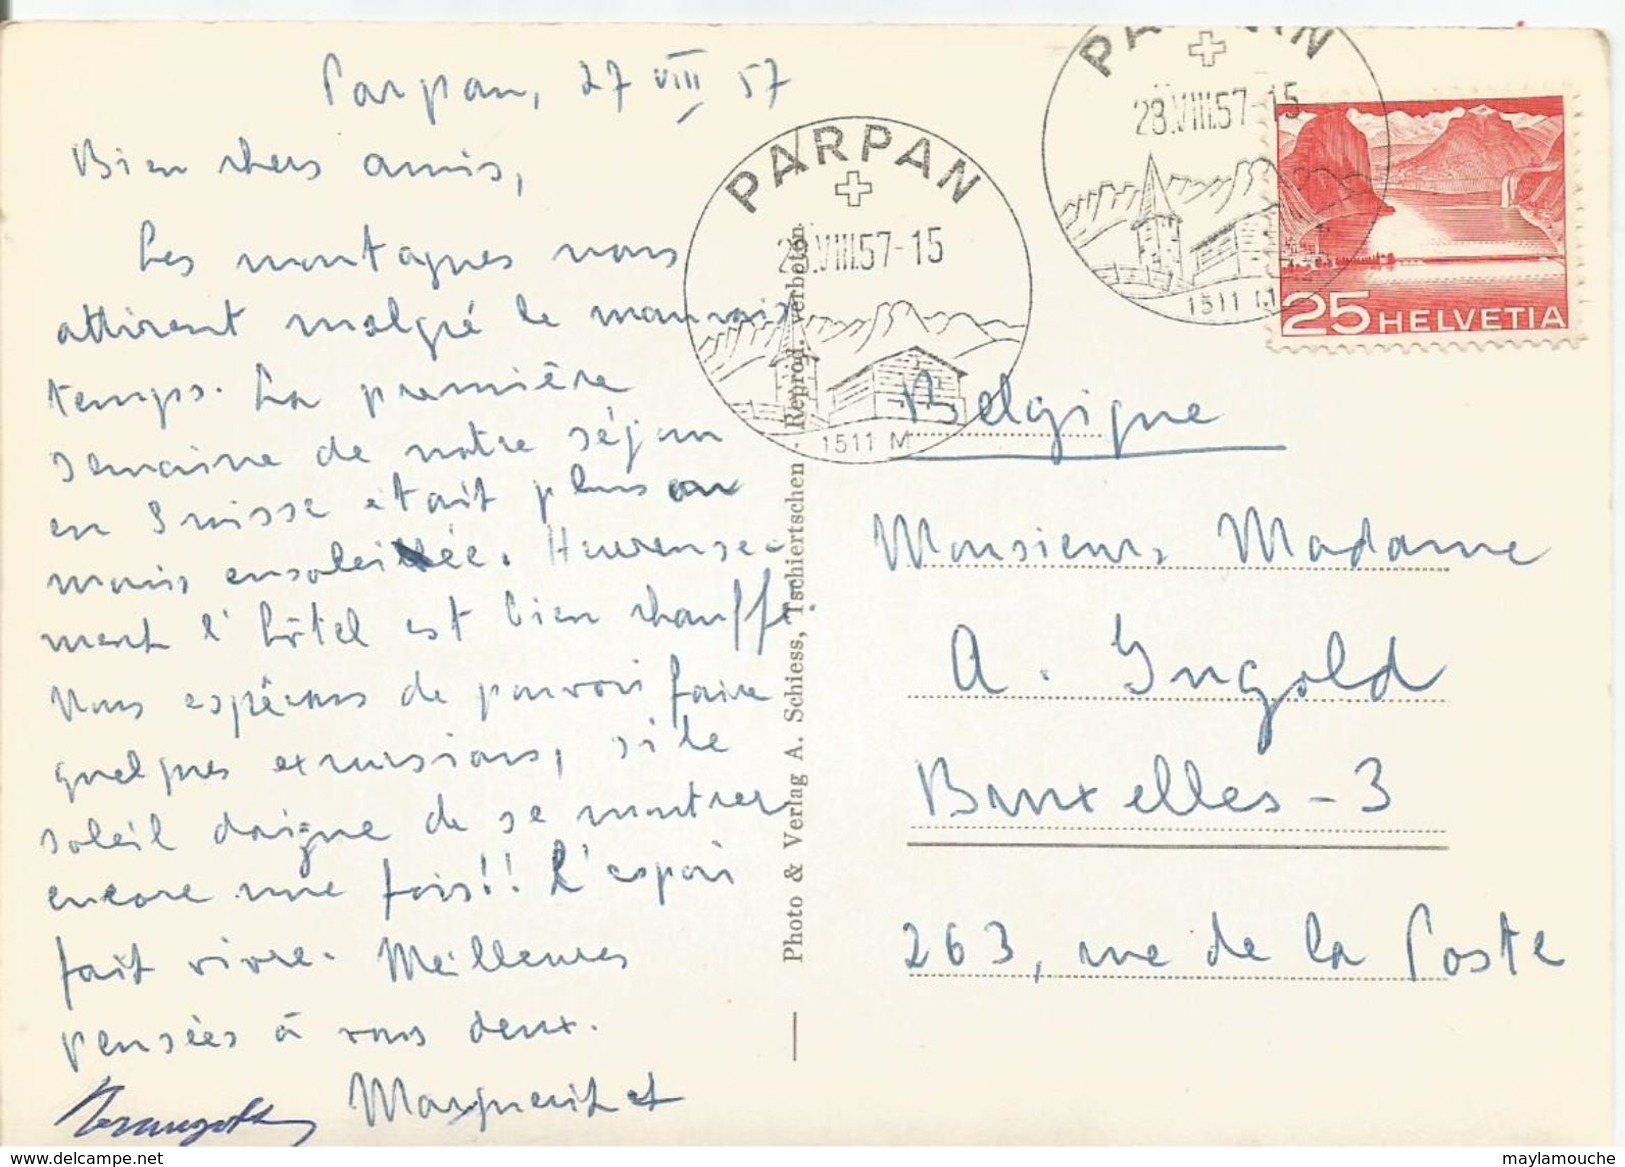 Parpan, 27 VIII 57
Bien chers amis,
Les montagnes nous
attirent malgré le mauvais
temps. La première
semaine de notre séjour
en Suisse était plus ou
moins ensoleillée. Heureuse-
ment l'hôtel est bien chauffé.
Nous espérons de pouvoir faire
quelques excursions, si le
soleil daigne de se montrer
encore une fois!! L'espoir
fait vivre. Meilleures
pensées à vous deux.
Marguerite et
PARPAN
28.VIII.57-15
1511 M
PARPAN
28.VIII.57-15
1511 M
25 HELVETIA
Photo & Verlag A. Schiess, Tschiertschen - Reprod. verboten
Belgique
Monsieur, Madame
A. Ingold
Bruxelles-3
263, rue de la Poste
delcampe.net
maylamouche